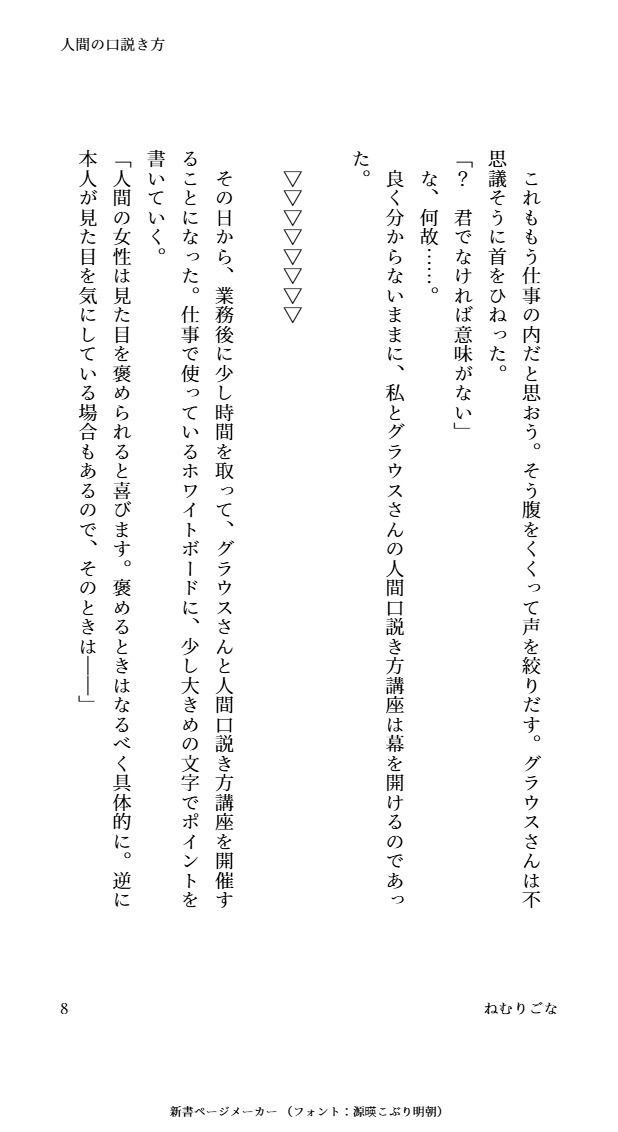 人間の口説き方
　これももう仕事の内だと思おう。そう腹をくくって声を絞りだす。グラウスさんは不
思議そうに首をひねった。
「？　君でなければ意味がない」
　な、何故……。
　良く分からないままに、私とグラウスさんの人間口説き方講座は幕を開けるのであっ
た。
　▽▽▽▽▽▽▽▽
　その日から、業務後に少し時間を取って、グラウスさんと人間口説き方講座を開催す
ることになった。仕事で使っているホワイトボードに、少し大きめの文字でポイントを
書いていく。
「人間の女性は見た目を褒められると喜びます。褒めるときはなるべく具体的に。逆に
本人が見た目を気にしている場合もあるので、そのときは――」
8
ねむりごな
新書ページメーカー（フォント：源暎こぶり明朝）